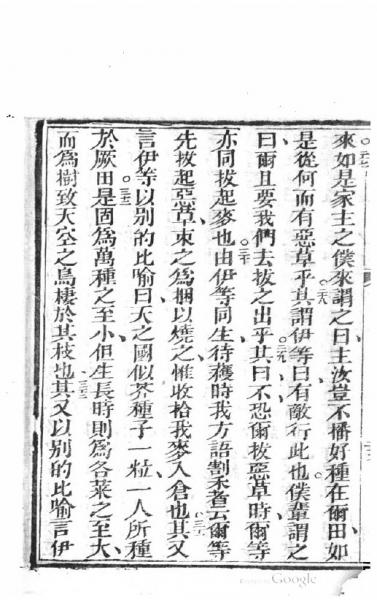 來如是家主之僕來謂之曰主汝豈不播好種在爾田如
是從何而有惡草乎其謂伊等曰有敵行此也僕輩謂之
曰爾且要我們去拔之出乎其曰不恐爾拔惡草時爾等
亦同拔起麥也由伊等同生待穫時我方語割禾者云爾等
先拔起惡草束之爲捆以燒之惟收拾我麥入倉也其又
言伊等以別的比喻曰天之國似芥種子一粒一人所種
於厥田是固爲萬種之至小但生長時則爲各菜之至大
而爲樹致天空之鳥棲於其枝也其又以別的比喻言伊
Google